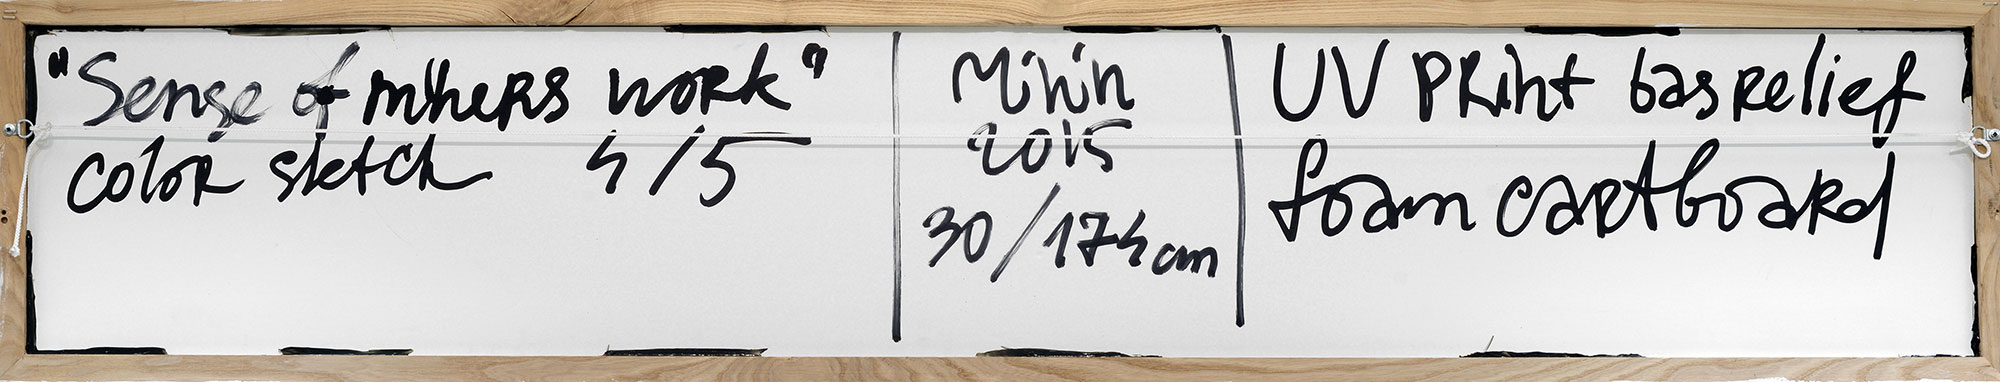 "Sense of miners work"
color sketch 4/5
Minin
2015
30/174cm
UV print bas relief
foam cartboard